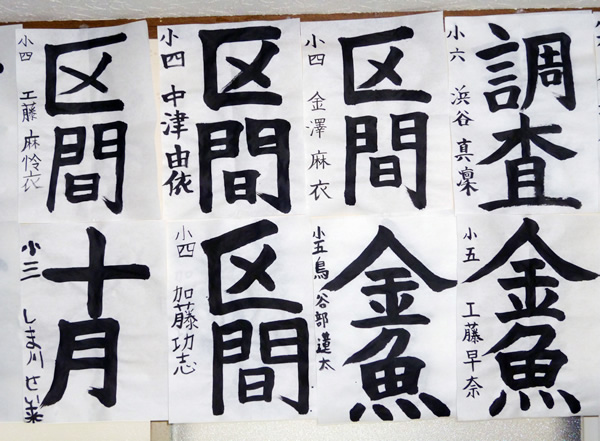 区間
小四 工藤 麻怜衣
区間
小四 中津 由依
区間
小四 金澤 麻衣
調査
小六 浜谷 真凜
十月
小三 しま川
区間
小四 加藤 功志
金魚
小五 鳥谷部 蓮太
金魚
小五 工藤 早奈